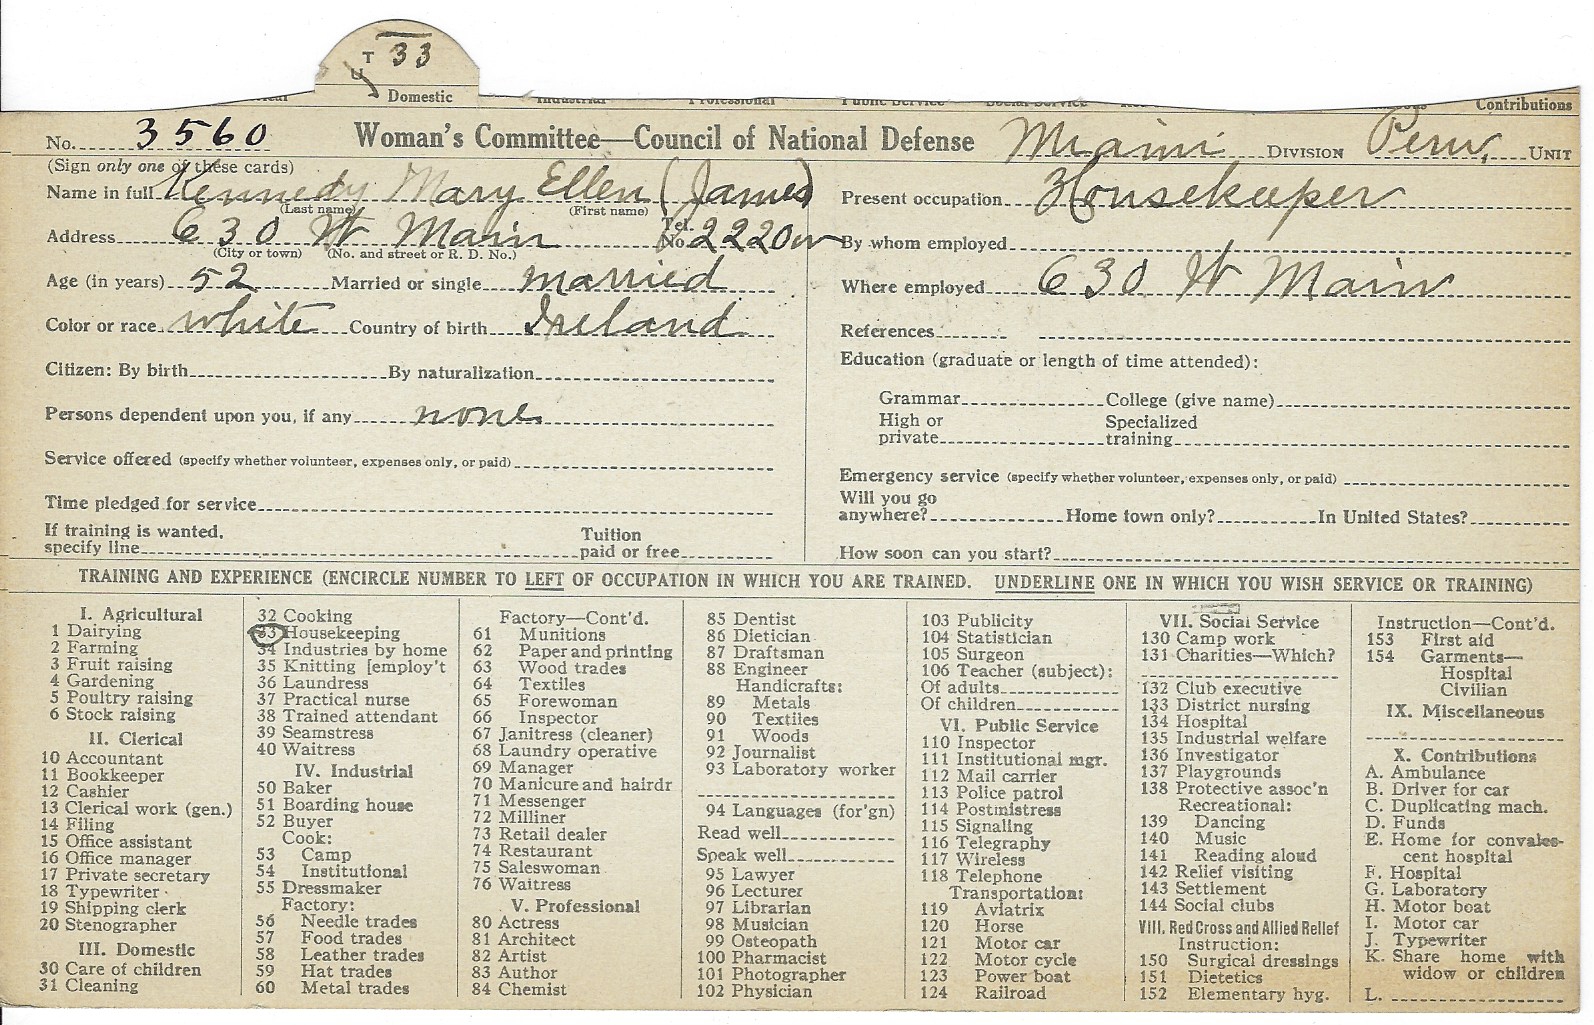 T 33
U
Domestic
Contributions
No. 3560 Woman's Committee—Council of National Defense Miami DIVISION Peru, UNIT
(Sign only one of these cards)
Name in full Kennedy Mary Ellen (James)
(Last name) (First name)
Present occupation Housekeeper
Address 630 W Main Tel. No. 2220w
(City or town) (No. and street or R. D. No.)
By whom employed
Age (in years) 52 Married or single married
Where employed 630 W Main
Color or race white Country of birth Ireland
References
Citizen: By birth By naturalization
Education (graduate or length of time attended):
Persons dependent upon you, if any none
Grammar College (give name)
High or private Specialized training
Service offered (specify whether volunteer, expenses only, or paid)
Emergency service (specify whether volunteer, expenses only, or paid)
Time pledged for service
Will you go anywhere? Home town only? In United States?
If training is wanted, specify line Tuition paid or free
How soon can you start?
TRAINING AND EXPERIENCE (ENCIRCLE NUMBER TO LEFT OF OCCUPATION IN WHICH YOU ARE TRAINED. UNDERLINE ONE IN WHICH YOU WISH SERVICE OR TRAINING)
I. Agricultural
1 Dairying
2 Farming
3 Fruit raising
4 Gardening
5 Poultry raising
6 Stock raising
II. Clerical
10 Accountant
11 Bookkeeper
12 Cashier
13 Clerical work (gen.)
14 Filing
15 Office assistant
16 Office manager
17 Private secretary
18 Typewriter
19 Shipping clerk
20 Stenographer
III. Domestic
30 Care of children
31 Cleaning
32 Cooking
33 Housekeeping
34 Industries by home
35 Knitting [employ't
36 Laundress
37 Practical nurse
38 Trained attendant
39 Seamstress
40 Waitress
IV. Industrial
50 Baker
51 Boarding house
52 Buyer
Cook:
53 Camp
54 Institutional
55 Dressmaker
Factory:
56 Needle trades
57 Food trades
58 Leather trades
59 Hat trades
60 Metal trades
Factory—Cont'd.
61 Munitions
62 Paper and printing
63 Wood trades
64 Textiles
65 Forewoman
66 Inspector
67 Janitress (cleaner)
68 Laundry operative
69 Manager
70 Manicure and hairdr
71 Messenger
72 Milliner
73 Retail dealer
74 Restaurant
75 Saleswoman
76 Waitress
V. Professional
80 Actress
81 Architect
82 Artist
83 Author
84 Chemist
85 Dentist
86 Dietician
87 Draftsman
88 Engineer
Handicrafts:
89 Metals
90 Textiles
91 Woods
92 Journalist
93 Laboratory worker
94 Languages (for'gn)
Read well
Speak well
95 Lawyer
96 Lecturer
97 Librarian
98 Musician
99 Osteopath
100 Pharmacist
101 Photographer
102 Physician
103 Publicity
104 Statistician
105 Surgeon
106 Teacher (subject):
Of adults
Of children
VI. Public Service
110 Inspector
111 Institutional mgr.
112 Mail carrier
113 Police patrol
114 Postmistress
115 Signaling
116 Telegraphy
117 Wireless
118 Telephone
Transportation:
119 Aviatrix
120 Horse
121 Motor car
122 Motor cycle
123 Power boat
124 Railroad
VII. Social Service
130 Camp work
131 Charities—Which?
132 Club executive
133 District nursing
134 Hospital
135 Industrial welfare
136 Investigator
137 Playgrounds
138 Protective assoc'n
Recreational:
139 Dancing
140 Music
141 Reading aloud
142 Relief visiting
143 Settlement
144 Social clubs
VIII. Red Cross and Allied Relief
Instruction:
150 Surgical dressings
151 Dietetics
152 Elementary hyg.
Instruction—Cont'd.
153 First aid
154 Garments—
Hospital
Civilian
IX. Miscellaneous
X. Contributions
A. Ambulance
B. Driver for car
C. Duplicating mach.
D. Funds
E. Home for convales-
cent hospital
F. Hospital
G. Laboratory
H. Motor boat
I. Motor car
J. Typewriter
K. Share home with
widow or children
L.